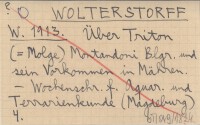 ? O WOLTERSTORFF
W. 1913. Über Triton
(= Molge) Montandoni Blgr. und
sein Vorkommen in Mähren.
- Wochenschr. f. Aquar. und
Terrarienkunde (Magdeburg)
4.